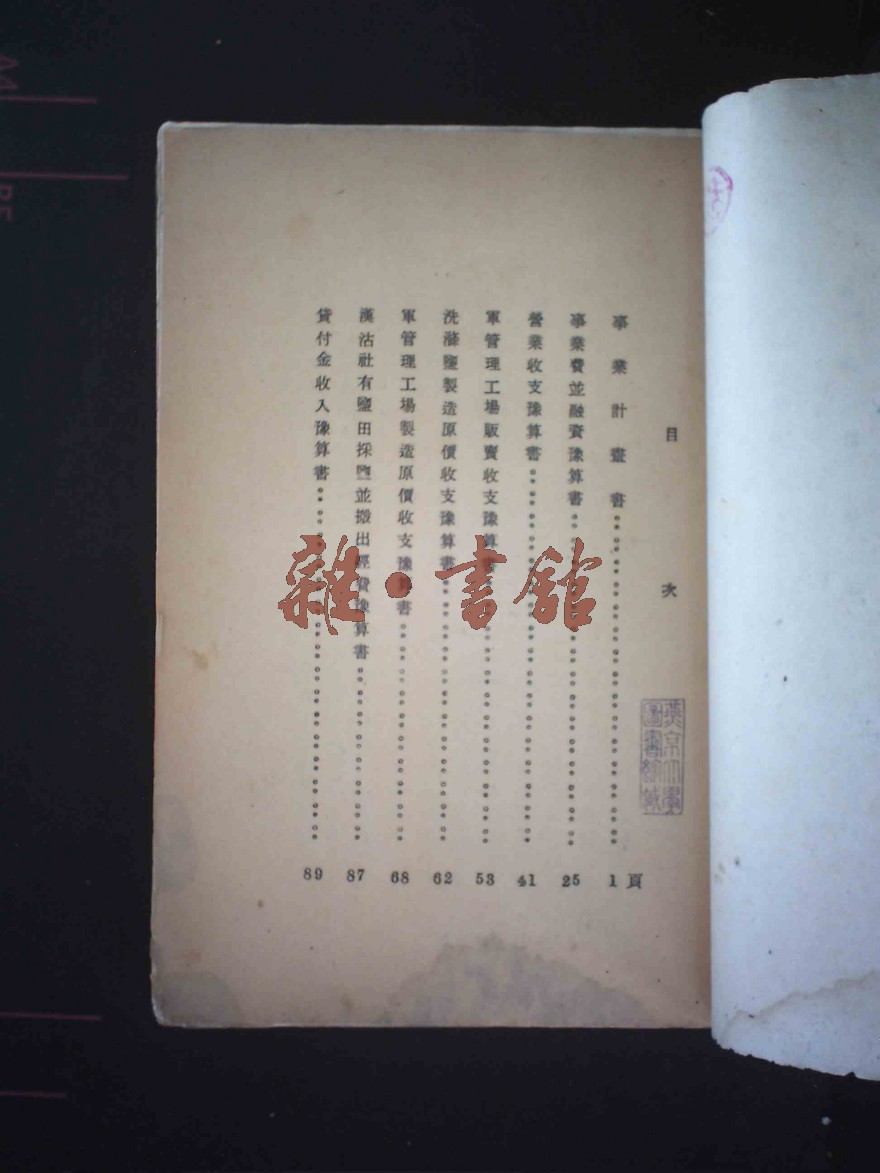 目次
事業計畫書 1頁
事業費並融資豫算書 25
營業收支豫算書 41
軍管理工場販賣收支豫算書 53
洗滌鹽製造原價收支豫算書 62
軍管理工場製造原價收支豫算書 68
漢沽社有鹽田採鹽並搬出經費豫算書 87
貸付金收入豫算書 89
燕京大學
圖書館藏
雜·書館